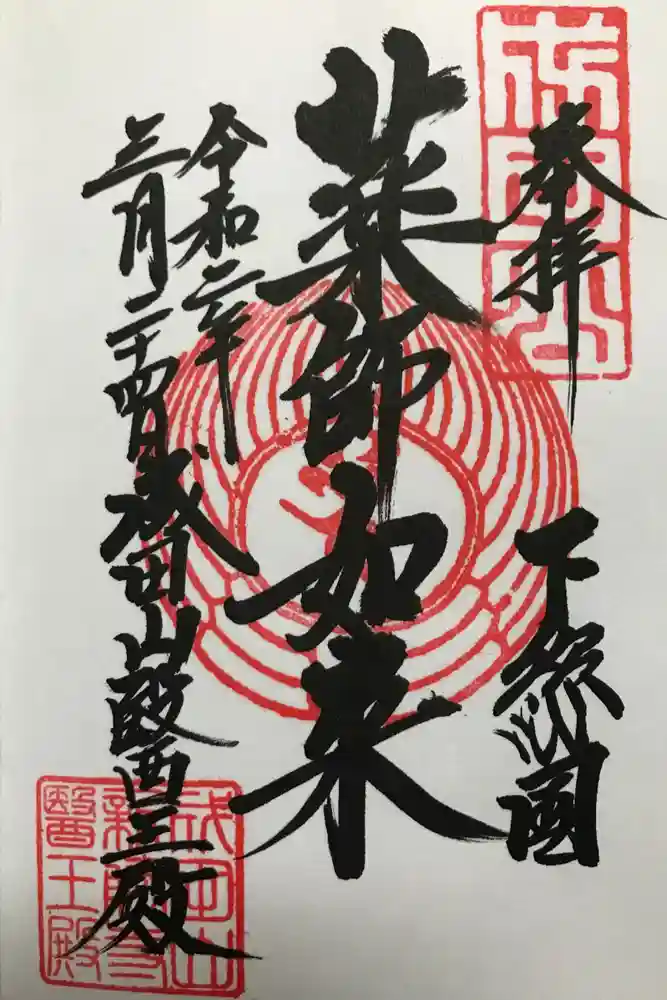 奉拝
下総國
薬師如来
令和二年
三月二十四日
成田山醫王殿
成田山
新勝寺
醫王殿